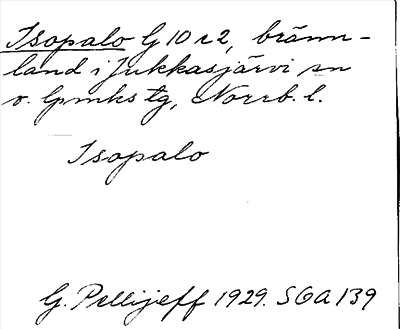 Isopalo G 10 r 2, bränn-
land i Jukkasjärvi sn
o. lpmks tg, Norrb. l.
Isopalo
G. Pellijeff 1929. SOA 139